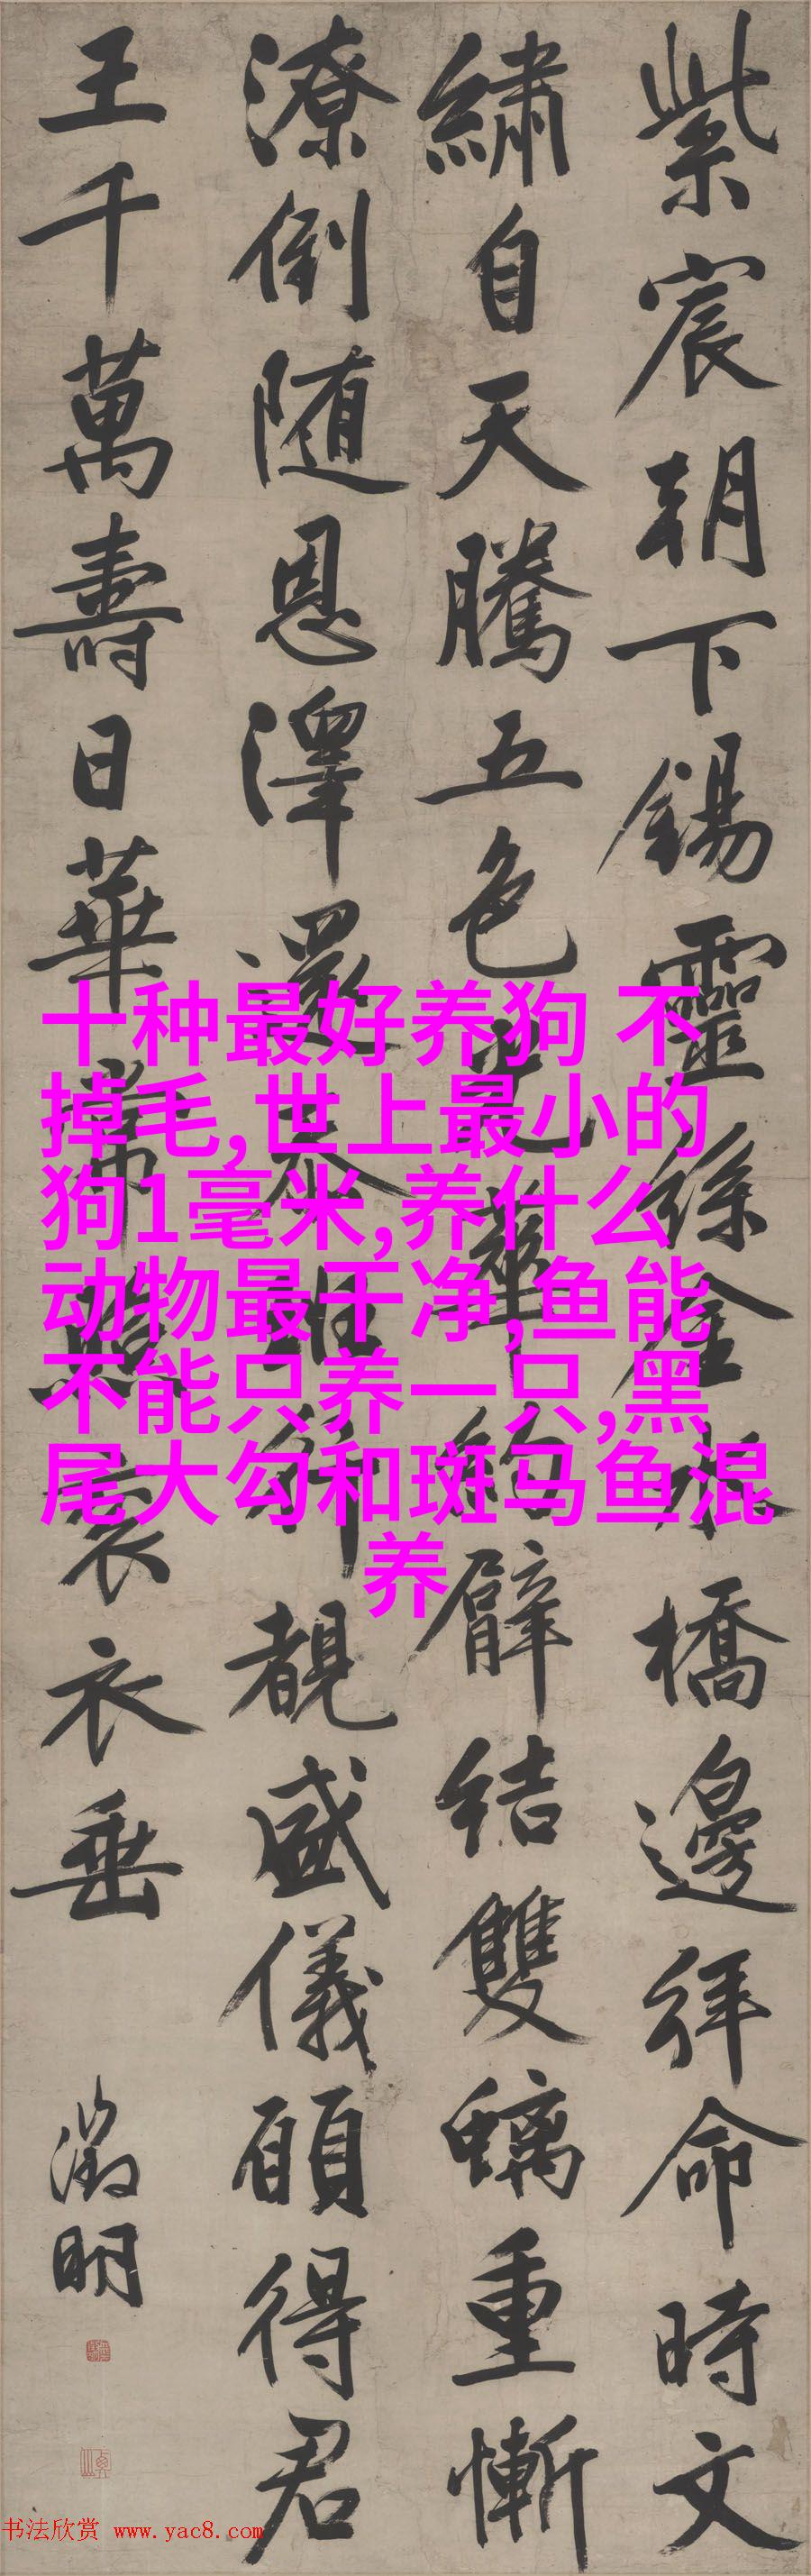 紫宸朝下錫靈絲金水橋邊拜命時文
繡自天騰五色光華約臂結雙螭重慚
潦倒随恩澤還 覩盛儀願得君
王千萬壽日華常照袞衣垂
徵明
十种最好养狗 不
掉毛,世上最小的
狗1毫米,养什么
动物最干净,鱼能
不能只养一只,黑
尾大勾和斑马鱼混
养
书法欣赏 www.yac8.com